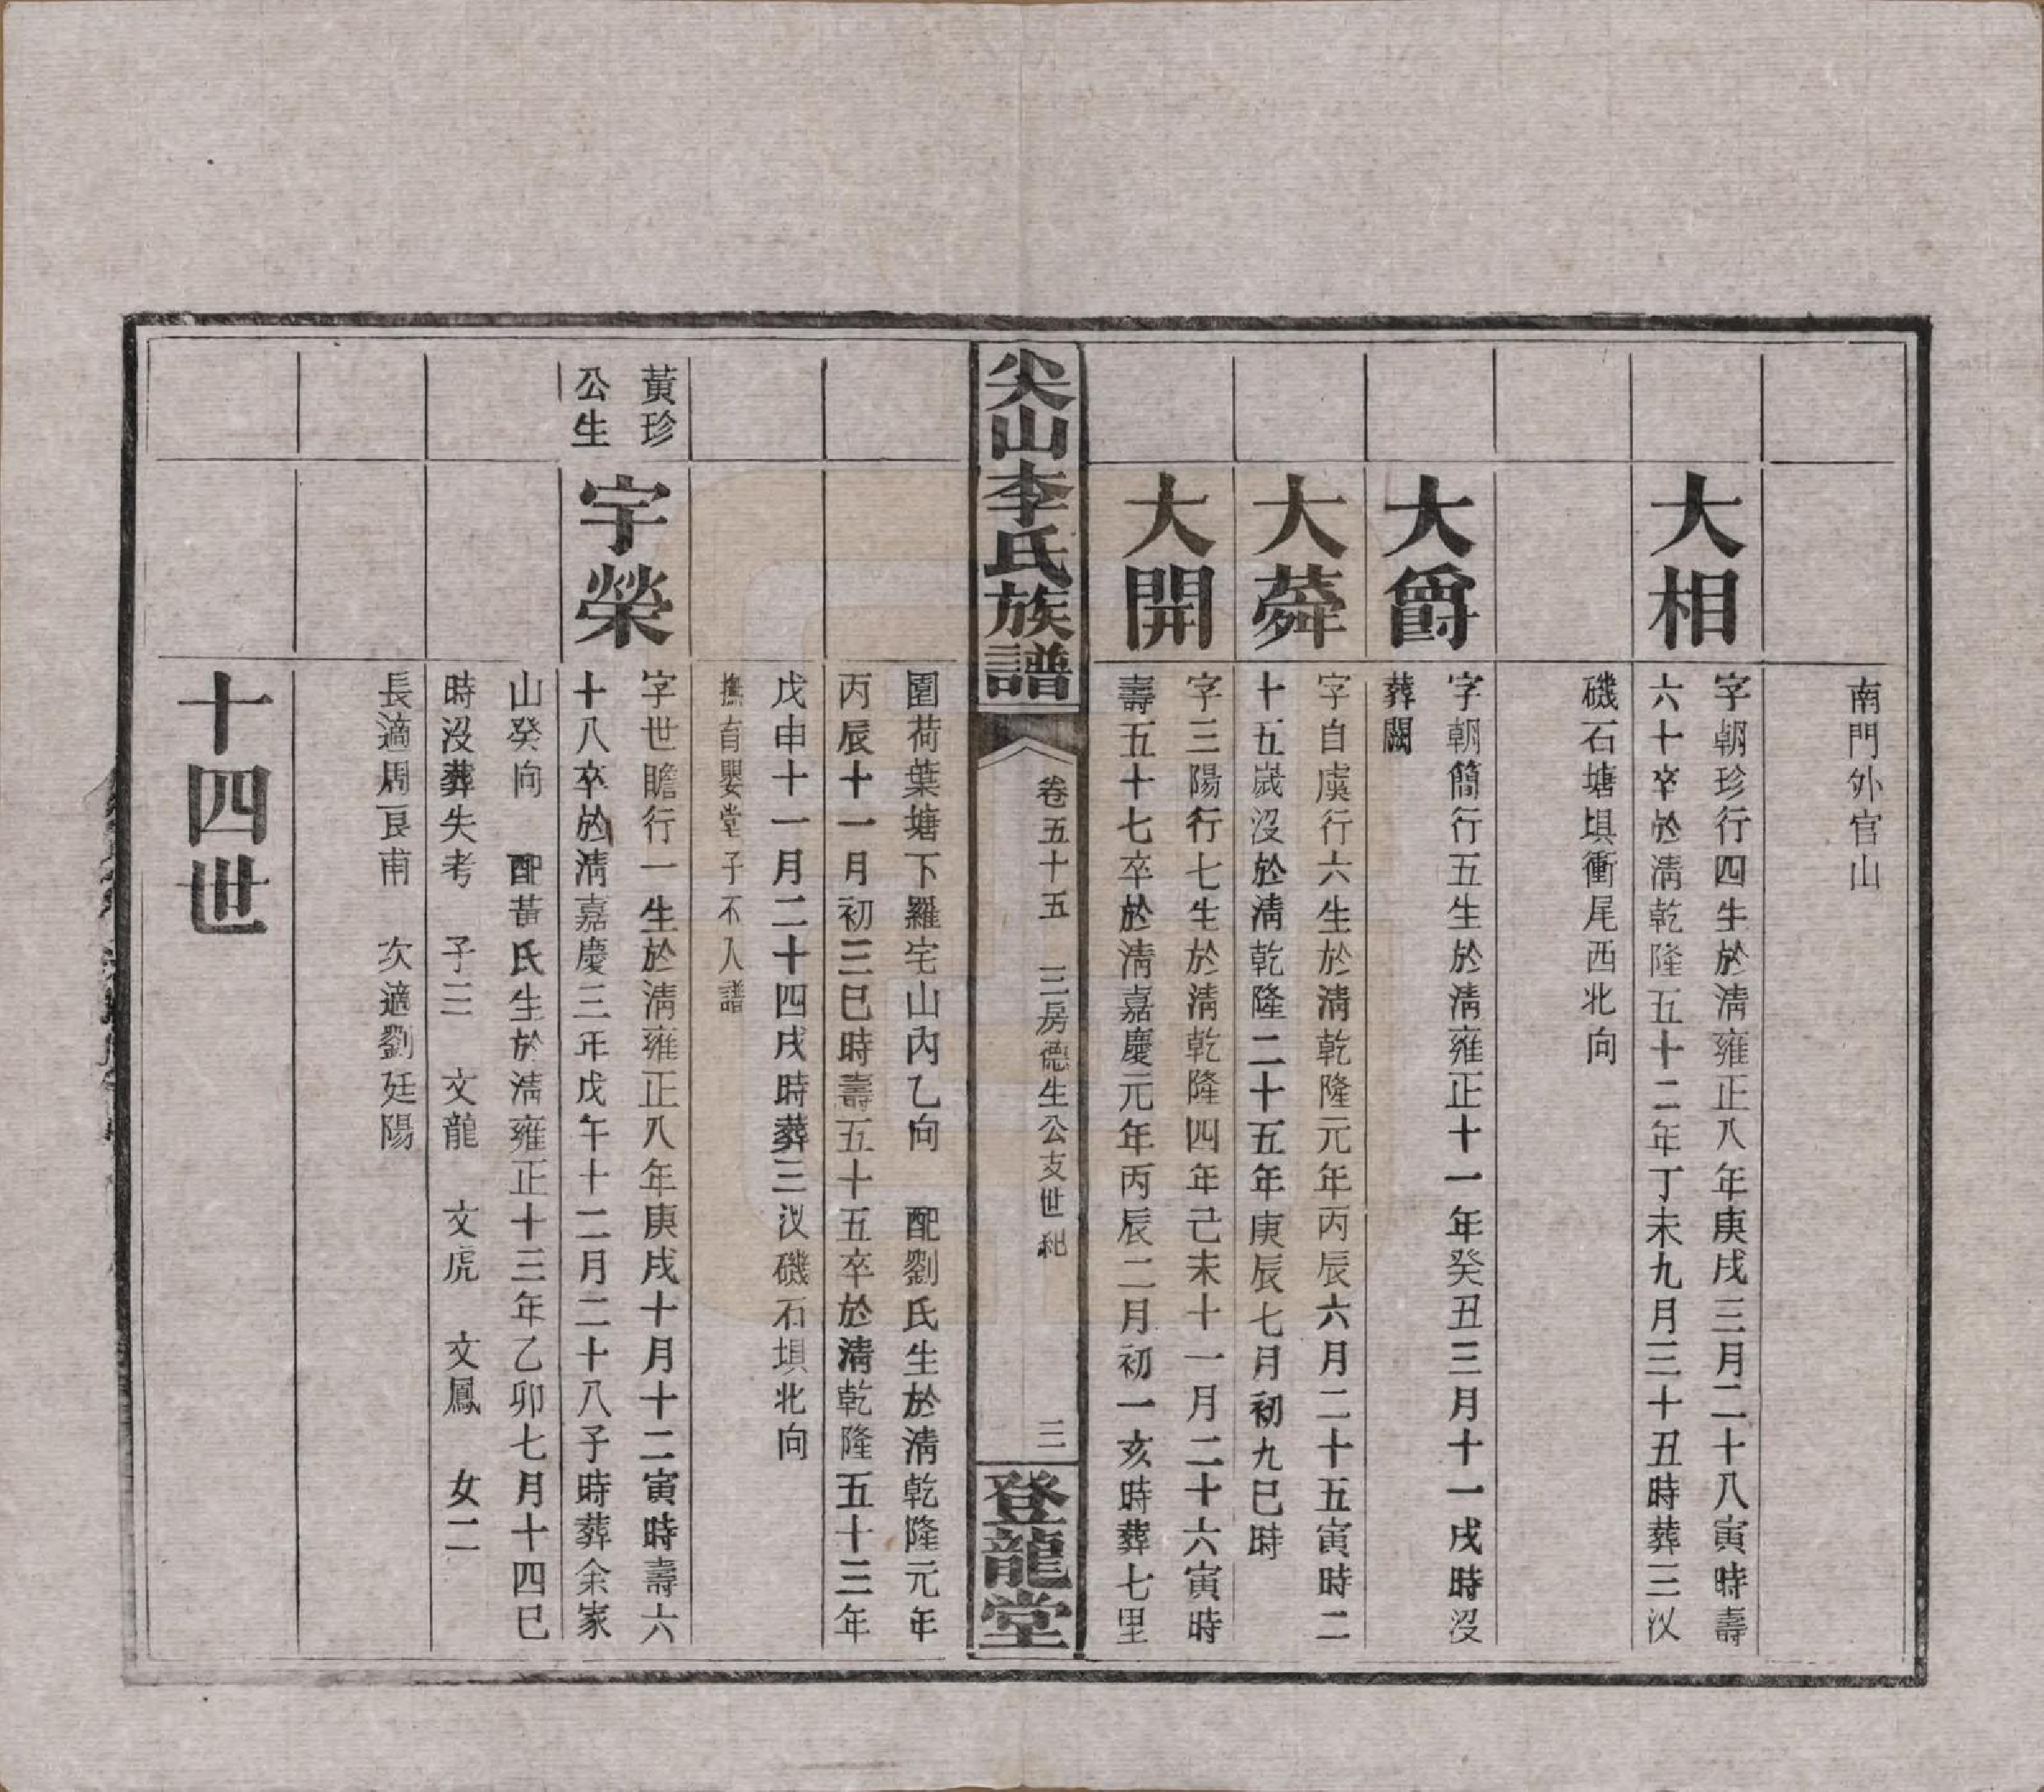 南門外官山
大相
字朝珍行四生於淸雍正八年庚戌三月二十八寅時壽
六十卒於淸乾隆五十二年丁未九月三十丑時葬三汊
磯石塘垻衝尾西北向
大爵
字朝簡行五生於淸雍正十一年癸丑三月十一戌時沒
葬闕
大蕣
字自虞行六生於淸乾隆元年丙辰六月二十五寅時二
十五歲沒於淸乾隆二十五年庚辰七月初九巳時
大開
字三陽行七生於淸乾隆四年己未十一月二十六寅時
壽五十七卒於淸嘉慶元年丙辰二月初一亥時葬七里
尖山李氏族譜
卷五十五 三房德生公支世紀
三
登龍堂
圍荷葉塘下羅宅山內乙向 配劉氏生於淸乾隆元年
丙辰十一月初三巳時壽五十五卒於淸乾隆五十三年
戊申十一月二十四戌時葬三汊磯石垻北向
撫育嬰堂子不入譜
黃珍
公生
宇榮
字世瞻行一生於淸雍正八年庚戌十月十二寅時壽六
十八卒於淸嘉慶三年戊午十二月二十八子時葬余家
山癸向 配黃氏生於淸雍正十三年乙卯七月十四巳
時沒葬失考 子三 文龍 文虎 文鳳 女二
長適周良甫 次適劉廷陽
十四世